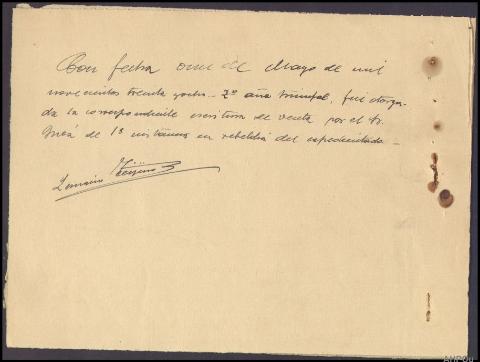 Con fecha once de Mayo de mil
novecientos treinta y ocho - 2º año triunfal, fué otorga-
da la correspondiente escritura de venta por el Sr.
Juez de 1ª instancia en rebeldía del expedientado -